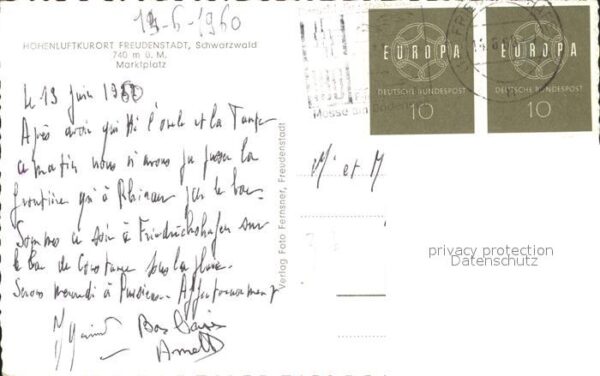 13-6-1960
HÖHENLUFTKURORT FREUDENSTADT, Schwarzwald
740 m ü. M.
Marktplatz
Le 13 Juin 1960
Après avoir quitté l'oncle et la Tante
ce matin nous n'avons pu passer la
frontière qu'à Rhinau par le bac.
Sommes ce soir à Friedrichshafen sur
le lac de Constance sous la pluie.
Serons mercredi à Affectueusement
Bons Baisers
Verlag Foto Fernsner, Freudenstadt
EUROPA
DEUTSCHE BUNDESPOST
10
EUROPA
DEUTSCHE BUNDESPOST
10
Messe
Mr et M
privacy protection
Datenschutz